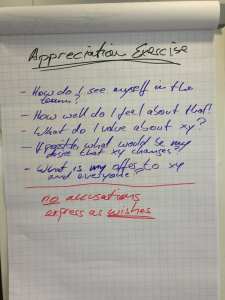 Appreciation Exercise
- How do I see myself in the
team?
- How well do I feel about that?
- What do I value about xy?
- If possible, what would be my
desire that xy changes
- What is my offer to xy
and everyone?
no accusations
express as wishes